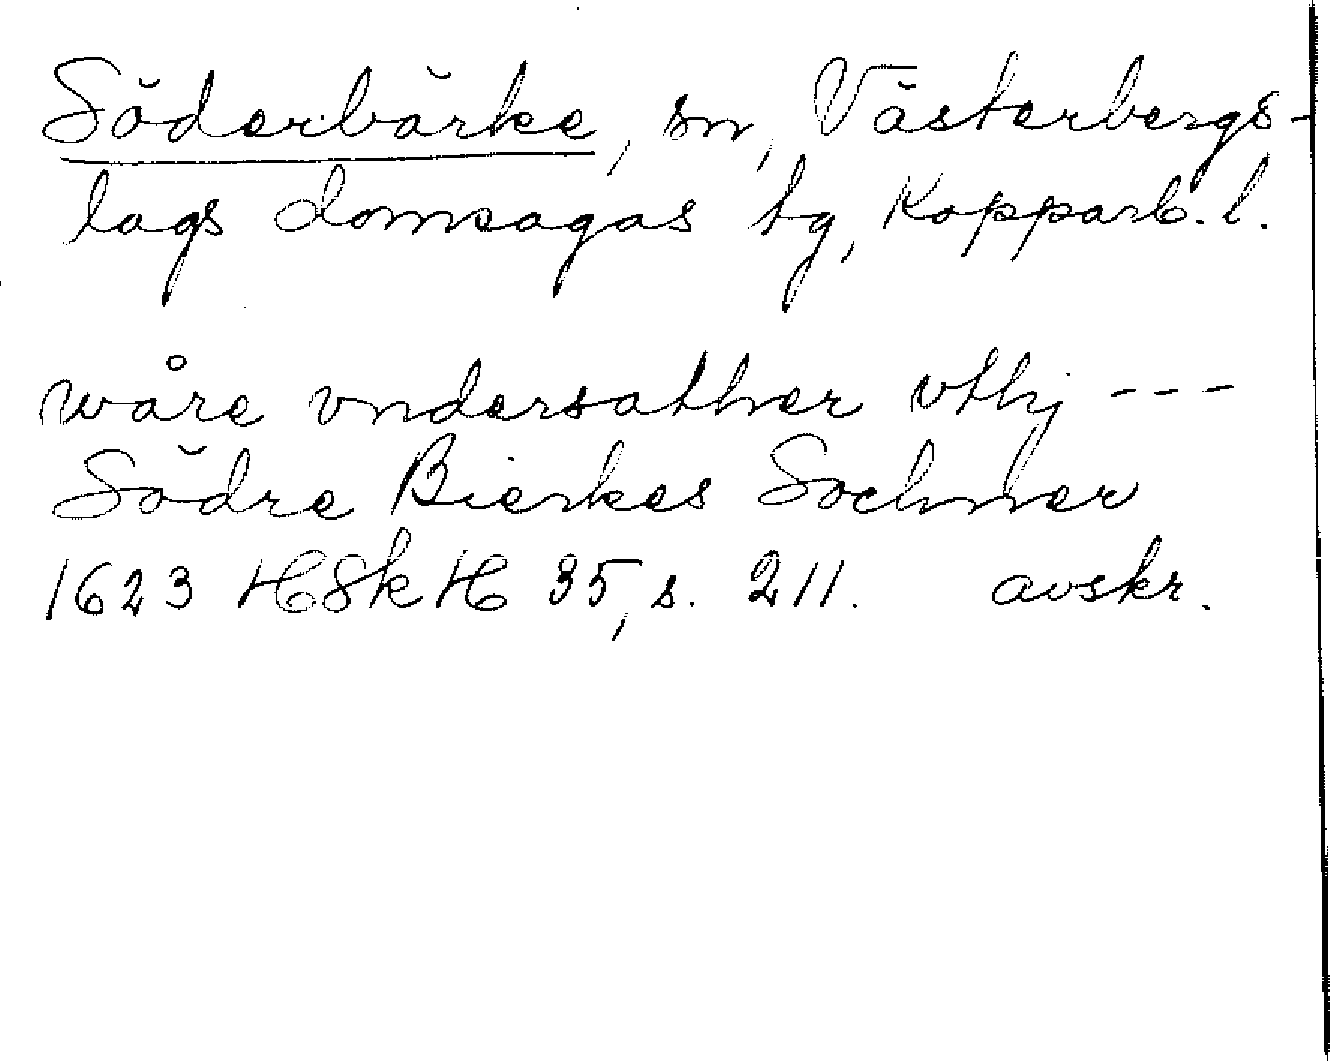 Söderbärke, sn, Västerbergs-
lags domsagas tg, Kopparb. l.
wåre vndersather vthj ---
Södre Bierkes Sochner
1623 HSkH 35, s. 211. avskr.